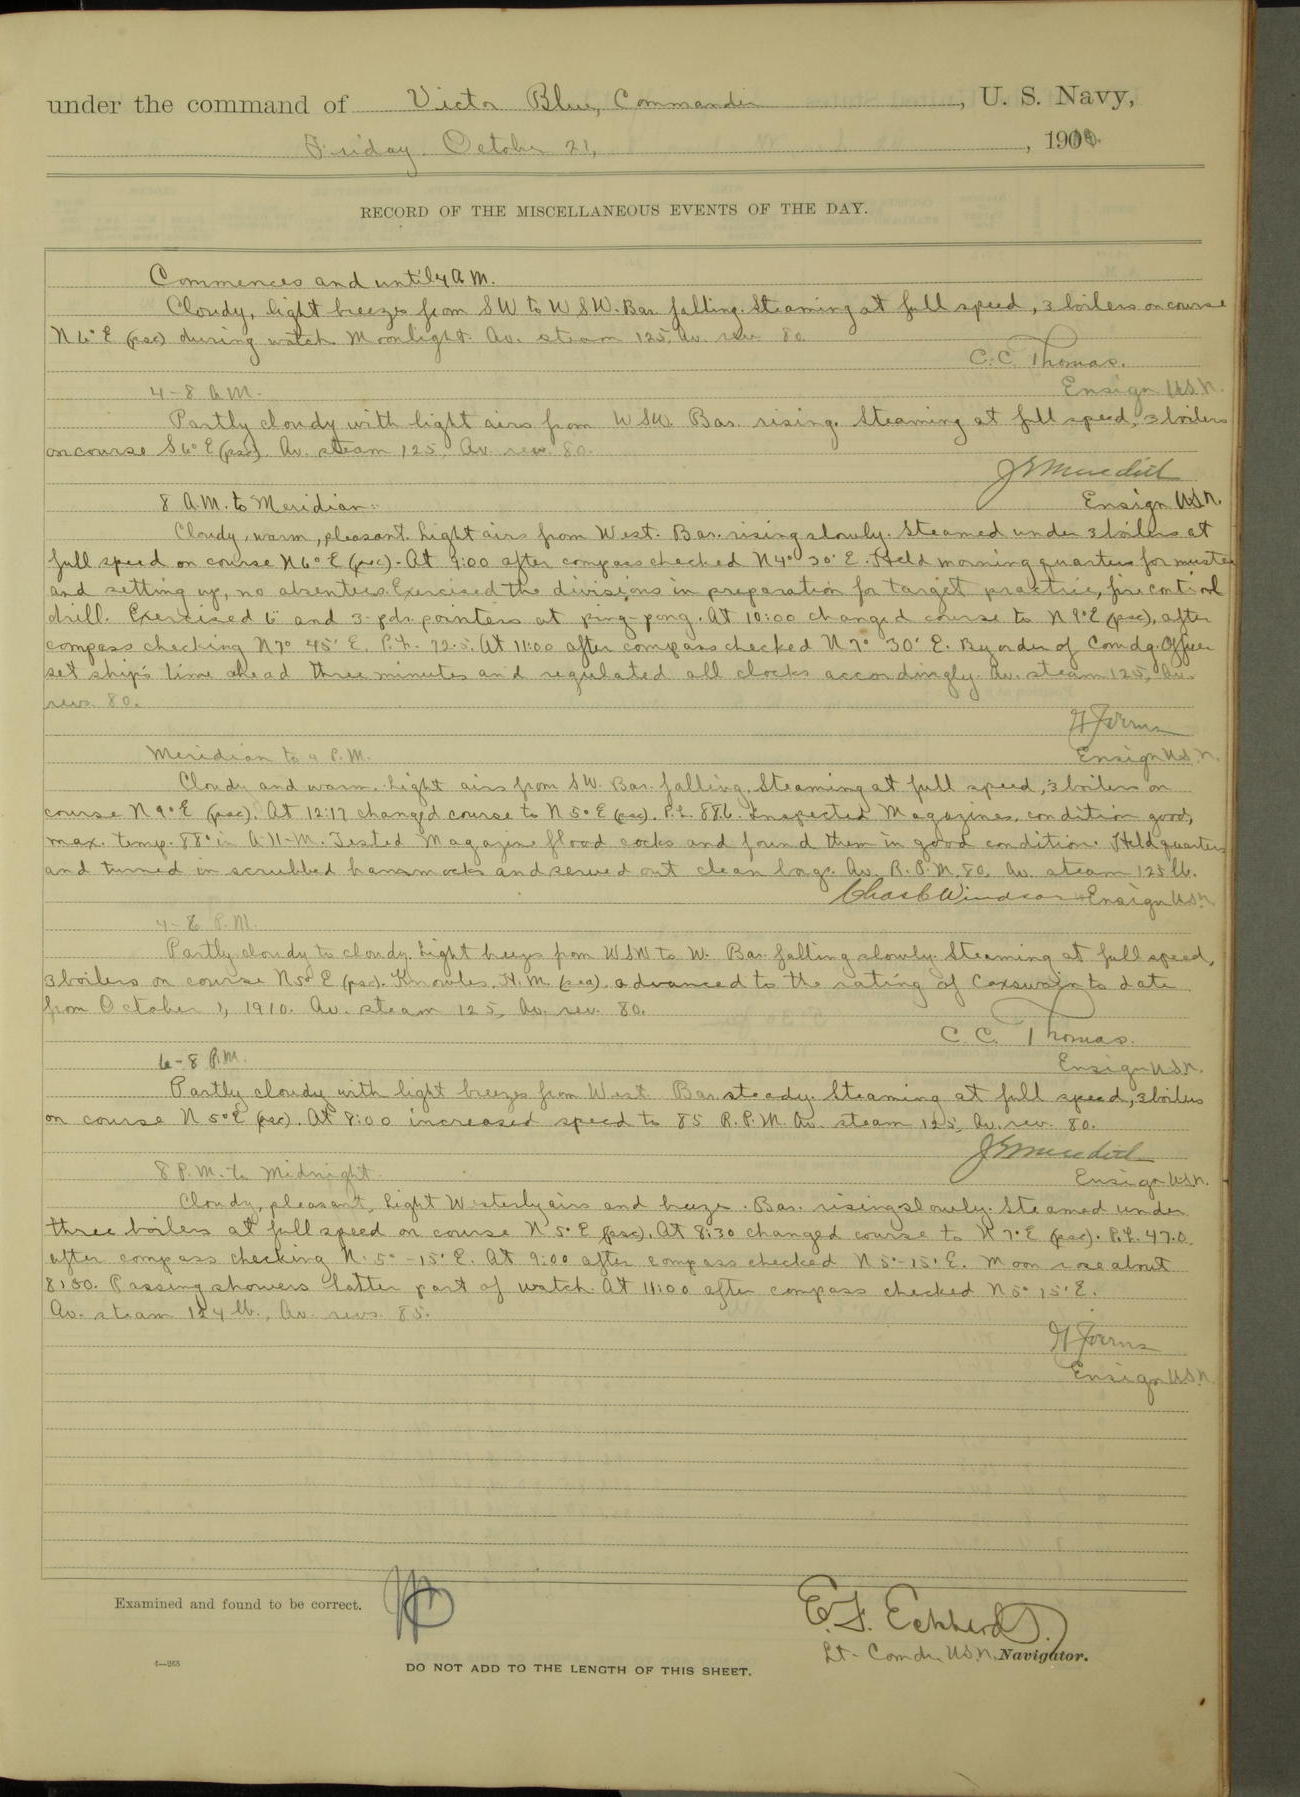 under the command of Victor Blue, Commander, U. S. Navy,
Friday. October 21, 1910.
RECORD OF THE MISCELLANEOUS EVENTS OF THE DAY.
Commences and until 4 A.M.
Cloudy, light breezes from SW to WSW. Bar. falling. Steaming at full speed, 3 boilers on course
N 6° E (psc) during watch. Moonlight. Av. steam 125, Av. rev. 80.
C. C. Thomas.
Ensign U.S.N.
4-8 A.M.
Partly cloudy with light airs from WSW. Bar. rising. Steaming at full speed, 3 boilers
on course S 6° E (psc). Av. steam 125. Av. rev. 80.
Meredith
Ensign U.S.N.
8 A.M. to Meridian.
Cloudy, warm, pleasant. Light airs from West. Bar. rising slowly. Steamed under 3 boilers at
full speed on course N 6° E (psc). At 9:00 after compass checked N 4° 30' E. Held morning quarters for muster
and setting up, no absentees. Exercised the divisions in preparation for target practice, fire control
drill. Exercised 6" and 3-pdr. pointers at ping-pong. At 10:00 changed course to N 9° E (psc), after
compass checking N 7° 45' E. P.L. 72.5. At 11:00 after compass checked N 7° 30' E. By order of Comdg. Officer
set ship's time ahead three minutes and regulated all clocks accordingly. Av. steam 125, Av.
revs. 80.
Ensign U.S.N.
Meridian to 4 P.M.
Cloudy and warm. Light airs from SW. Bar. falling. Steaming at full speed, 3 boilers on
course N 9° E (psc). At 12:17 changed course to N 5° E (psc). P.L. 88.6. Inspected Magazines, condition good,
max. temp. 88° in A-11-M. Tested Magazine flood cocks and found them in good condition. Held quarters
and turned in scrubbed hammocks and served out clean bags. Av. R.P.M. 80, Av. steam 125 lb.
Chas C Windsor Ensign U.S.N.
4-6 P.M.
Partly cloudy to cloudy. Light breeze from WSW to W. Bar. falling slowly. Steaming at full speed,
3 boilers on course N 5° E (psc). Knowles, H. M. (sea). advanced to the rating of Coxswain to date
from October 1, 1910. Av. steam 125, Av. rev. 80.
C. C. Thomas.
Ensign U.S.N.
6-8 P.M.
Partly cloudy with light breezes from West. Bar. steady. Steaming at full speed, 3 boilers
on course N 5° E (psc). At 8:00 increased speed to 85 R.P.M. Av. steam 125, Av. rev. 80.
Meredith
Ensign U.S.N.
8 P.M. to Midnight.
Cloudy, pleasant, light Westerly airs and breeze. Bar. rising slowly. Steamed under
three boilers at full speed on course N 5° E (psc). At 8:30 changed course to N 7° E (psc). P.L. 47.0.
after compass checking N. 5° - 15' E. At 9:00 after compass checked N 5° - 15' E. Moon rose about
8:00. Passing showers latter part of watch. At 11:00 after compass checked N 5° 15' E.
Av. steam 124 lb., Av. revs. 85.
Ensign U.S.N.
Examined and found to be correct.
E. F. Eckhardt.
Lt-Comdr. U.S.N. Navigator.
6-265
DO NOT ADD TO THE LENGTH OF THIS SHEET.